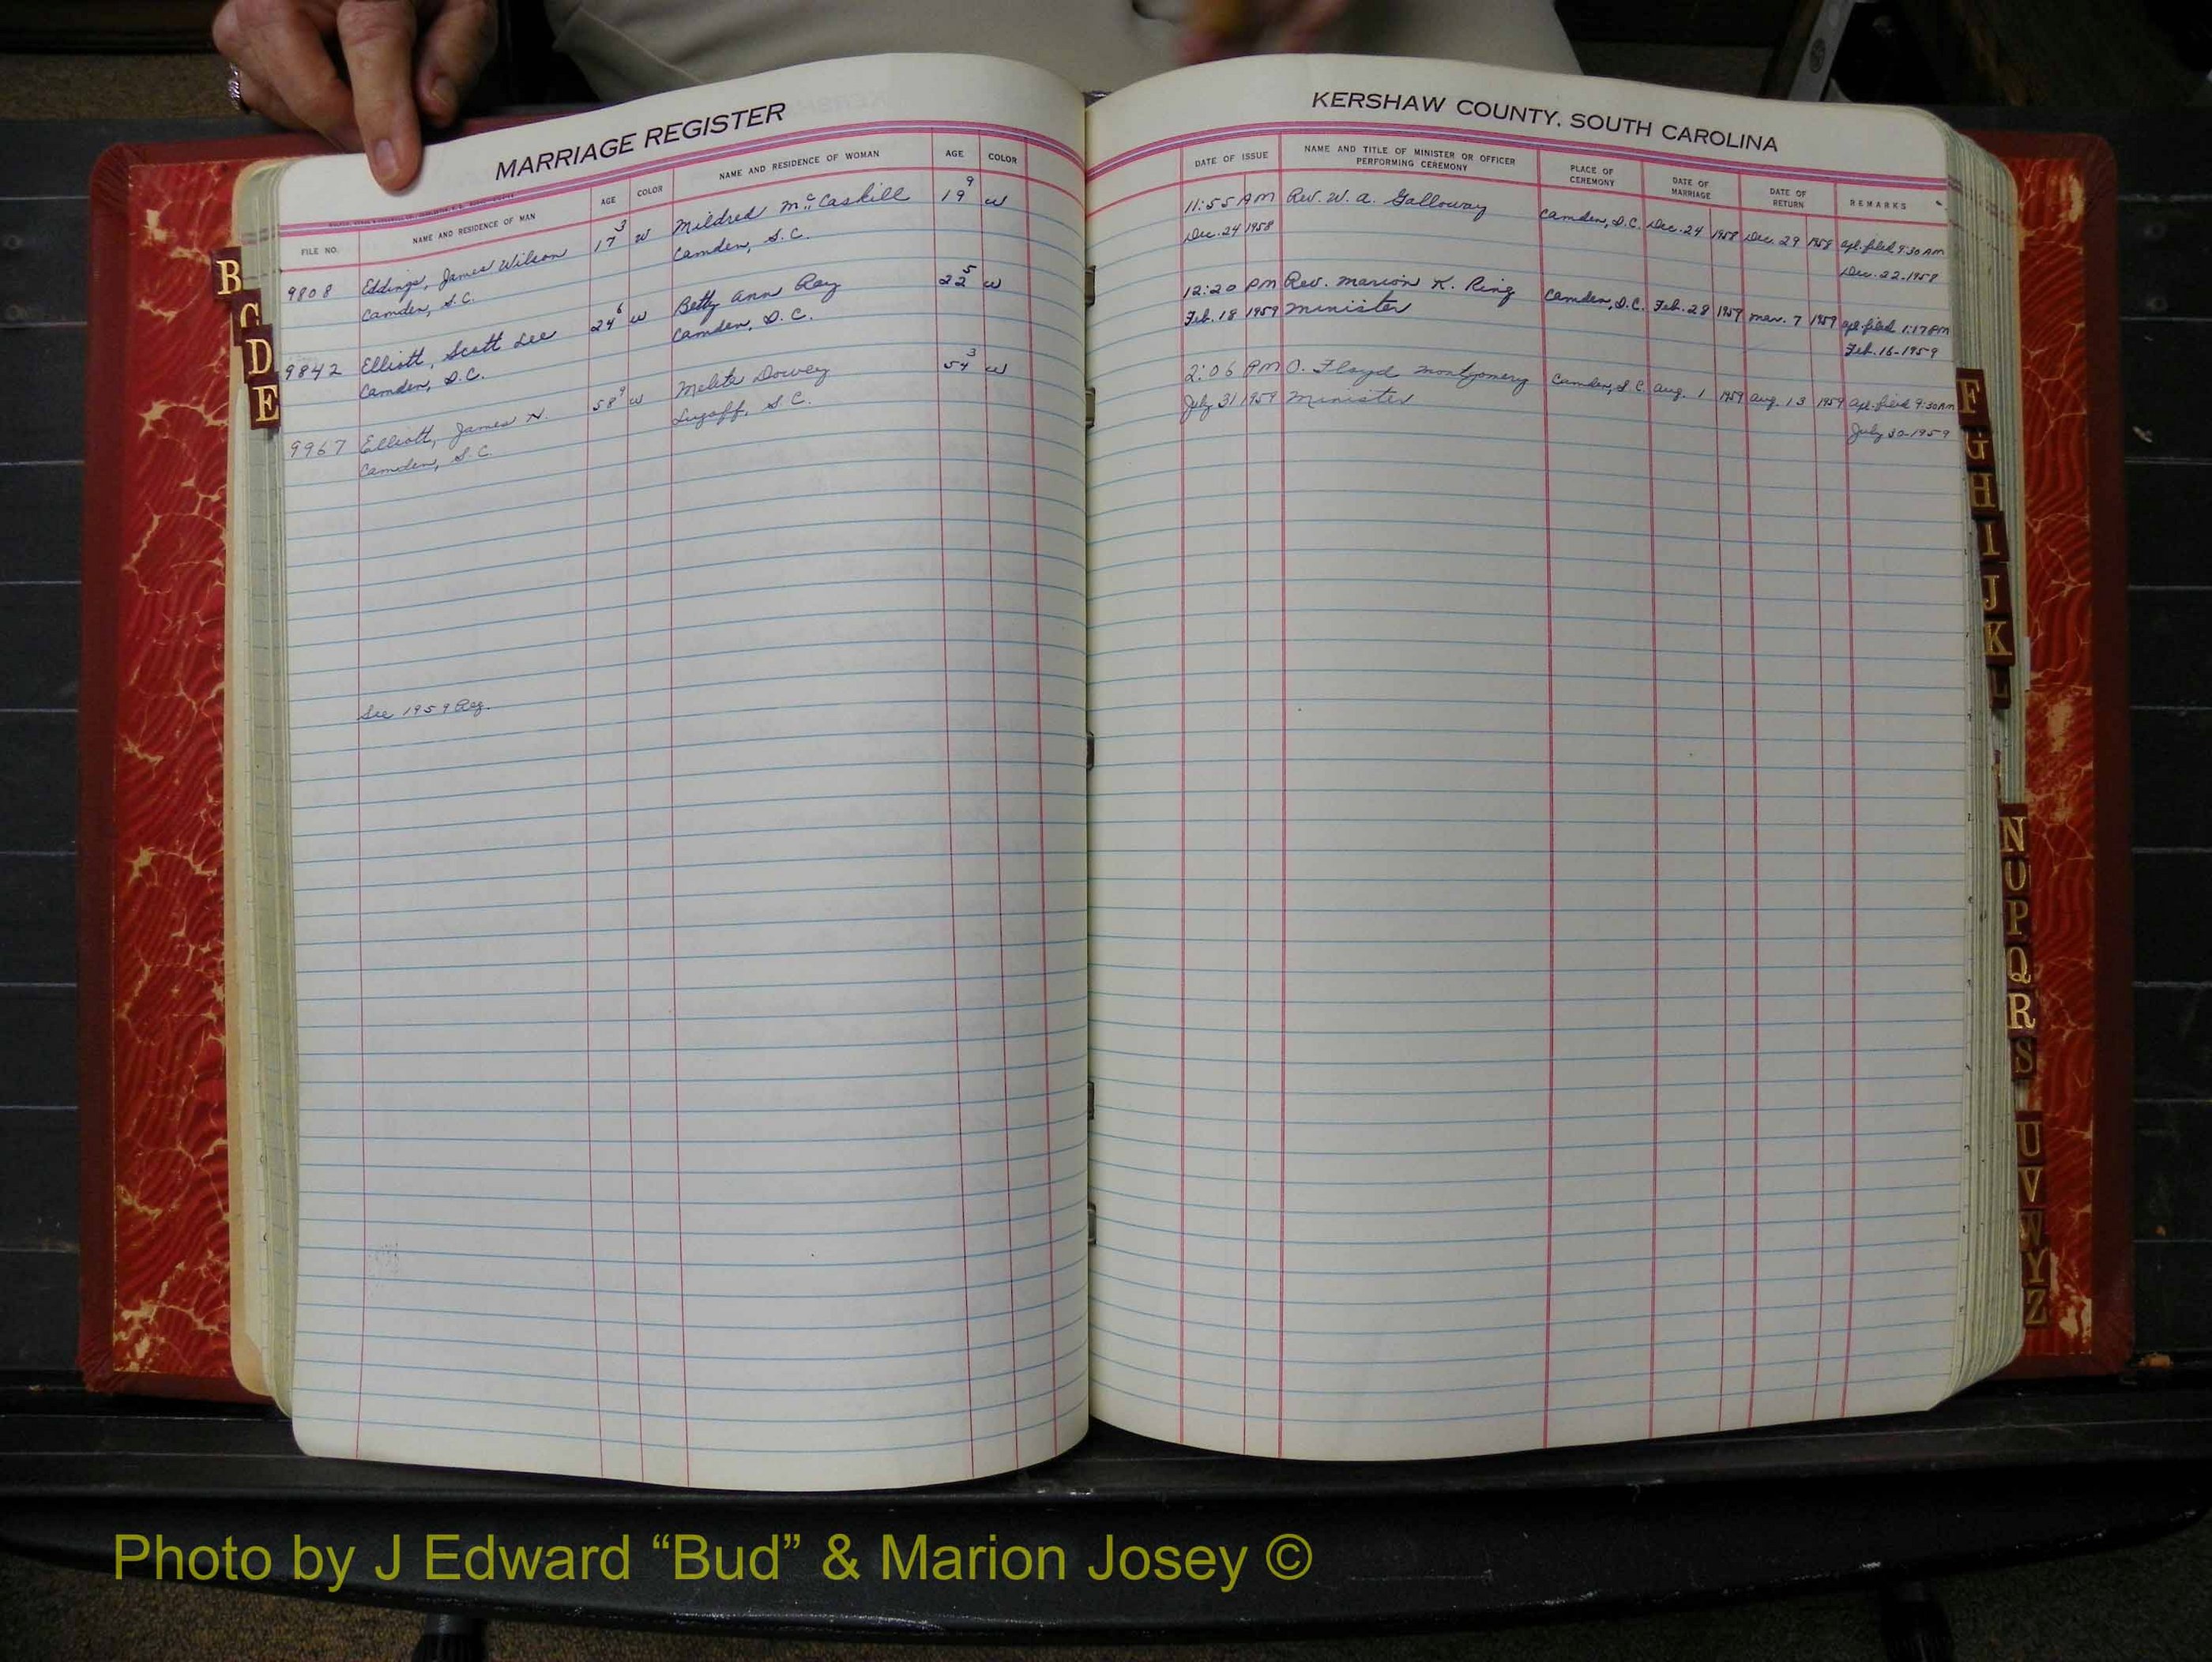 MARRIAGE REGISTER
FILE NO. NAME AND RESIDENCE OF MAN AGE COLOR NAME AND RESIDENCE OF WOMAN AGE COLOR
9808 Eddings, James Wilson 17 3 W Mildred McCaskill 19 9 W
Camden, S.C. Camden, S.C.
9842 Elliott, Scott Lee 24 6 W Betty Ann Ray 22 5 W
Camden, S.C. Camden, S.C.
9967 Elliott, James N. 58 9 W Dowey 54 3 W
Camden, S.C. Lugoff, S.C.
See 1959 Reg.
KERSHAW COUNTY, SOUTH CAROLINA
DATE OF ISSUE NAME AND TITLE OF MINISTER OR OFFICER PERFORMING CEREMONY PLACE OF CEREMONY DATE OF MARRIAGE DATE OF RETURN REMARKS
11:55 AM Rev. W. A. Galloway Camden, S.C. Dec. 24 1958 Dec. 29 1958 apl. filed 9:30 AM
Dec. 24 1958 Dec. 22-1958
12:20 PM Rev. Marion K. King Camden, S.C. Feb. 28 1959 Mar. 7 1959 apl. filed 1:17 PM
Feb. 18 1959 Minister Feb. 16-1959
2:06 PM O. Floyd Montgomery Camden, S.C. Aug. 1 1959 Aug. 13 1959 apl. filed 9:30 AM
July 31 1959 Minister July 30-1959
B
C
D
E
F
G
H
I
J
K
L
N
O
P
Q
R
S
U
V
W
Y
Z
Photo by J Edward “Bud” & Marion Josey ©